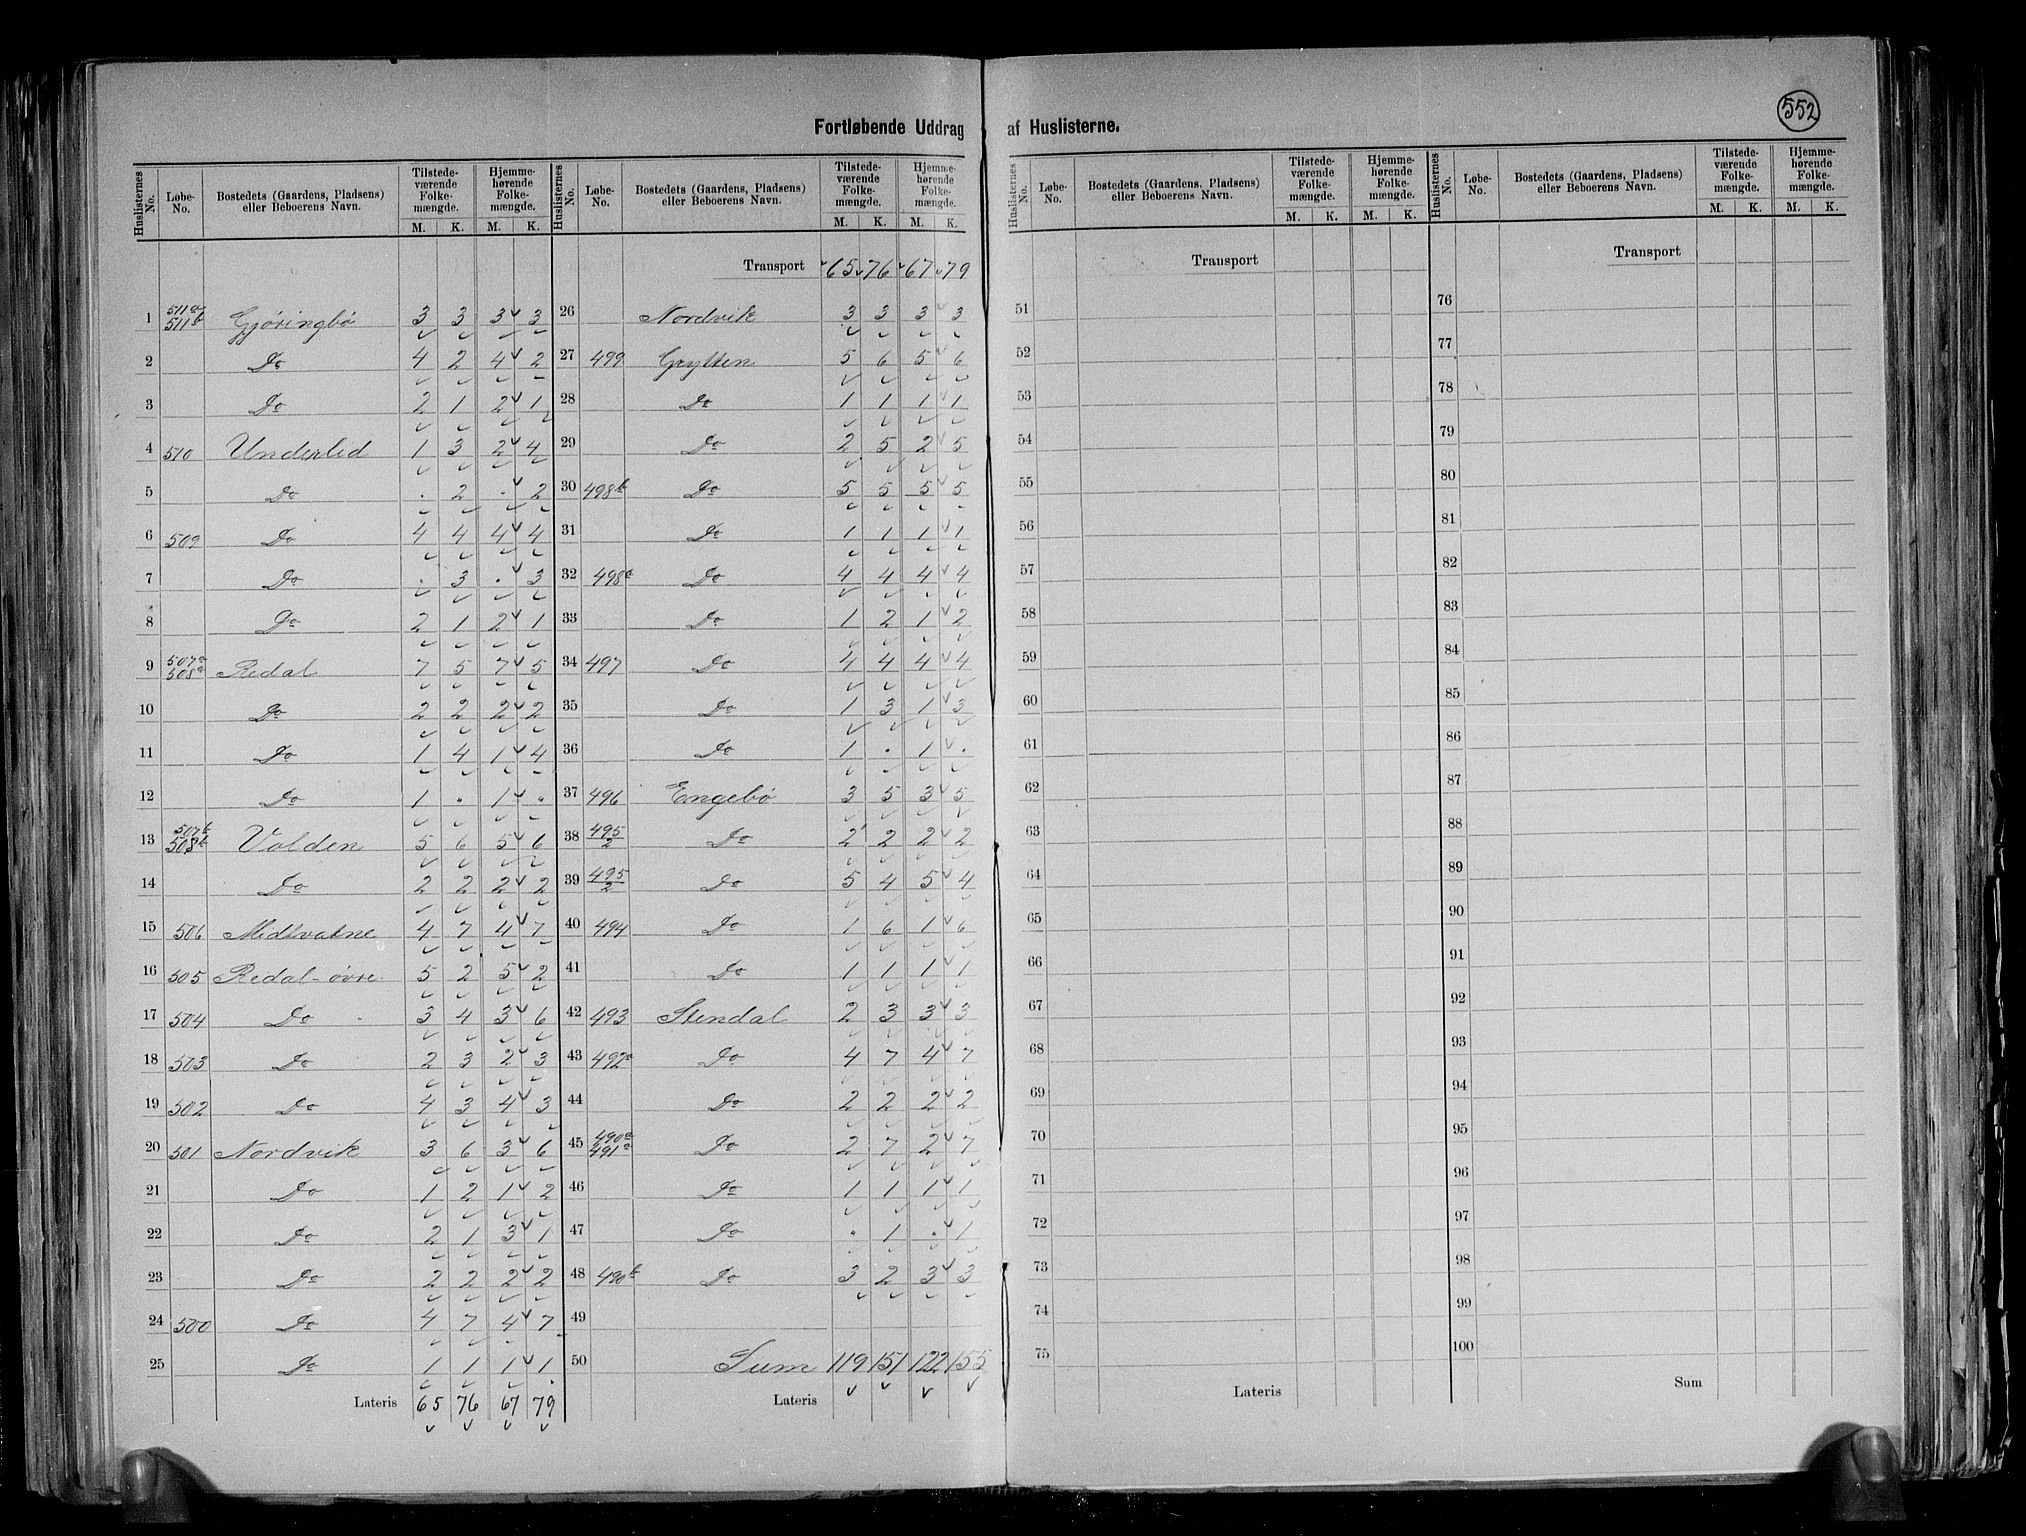 552
Fortløbende Uddrag af Huslisterne.
Huslisternes No. | Løbe-No. | Bostedets (Gaardens, Pladsens) eller Beboerens Navn. | Tilstedeværende Folkemængde. M. K. | Hjemmehørende Folkemængde. M. K.
1 511a 511b Gjøringbø 3 3 3 3
2 Do 4 2 4 2
3 Do 2 1 2 1
4 510 Underlid 1 3 2 4
5 Do . 2 . 2
6 509 Do 4 4 4 4
7 Do . 3 . 3
8 Do 2 1 2 1
9 507a 508a Redal 7 5 7 5
10 Do 2 2 2 2
11 Do 1 4 1 4
12 Do 1 . 1 .
13 507b 508b Volden 5 6 5 6
14 Do 2 2 2 2
15 506 Midtvatne 4 7 4 7
16 505 Redal-øvre 5 2 5 2
17 504 Do 3 4 3 6
18 503 Do 2 3 2 3
19 502 Do 4 3 4 3
20 501 Nordvik 3 6 3 6
21 Do 1 2 1 2
22 Do 2 1 3 1
23 Do 2 2 2 2
24 500 Do 4 7 4 7
25 Do 1 1 1 1
Lateris 65 76 67 79
Huslisternes No. | Løbe-No. | Bostedets (Gaardens, Pladsens) eller Beboerens Navn. | Tilstedeværende Folkemængde. M. K. | Hjemmehørende Folkemængde. M. K.
Transport 65 76 67 79
26 Nordvik 3 3 3 3
27 499 Grytten 5 6 5 6
28 Do 1 1 1 1
29 Do 2 5 2 5
30 498b Do 5 5 5 5
31 Do 1 1 1 1
32 498a Do 4 4 4 4
33 Do 1 2 1 2
34 497 Do 4 4 4 4
35 Do 1 3 1 3
36 Do 1 . 1 .
37 496 Engebø 3 5 3 5
38 495/2 Do 2 2 2 2
39 495/2 Do 5 4 5 4
40 494 Do 1 6 1 6
41 Do 1 1 1 1
42 493 Stendal 2 3 3 3
43 492a Do 4 7 4 7
44 Do 2 2 2 2
45 490a 491a Do 2 7 2 7
46 Do 1 1 1 1
47 Do . 1 . 1
48 490b Do 3 2 3 3
49
50 Sum 119 151 122 155
Lateris
Huslisternes No. | Løbe-No. | Bostedets (Gaardens, Pladsens) eller Beboerens Navn. | Tilstedeværende Folkemængde. M. K. | Hjemmehørende Folkemængde. M. K.
Transport
51
52
53
54
55
56
57
58
59
60
61
62
63
64
65
66
67
68
69
70
71
72
73
74
75
Lateris
Huslisternes No. | Løbe-No. | Bostedets (Gaardens, Pladsens) eller Beboerens Navn. | Tilstedeværende Folkemængde. M. K. | Hjemmehørende Folkemængde. M. K.
Transport
76
77
78
79
80
81
82
83
84
85
86
87
88
89
90
91
92
93
94
95
96
97
98
99
100
Sum